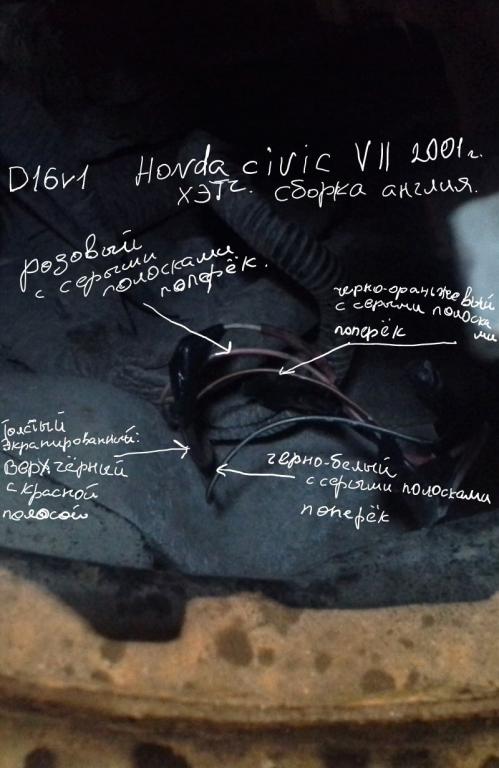 D16v1 Honda civic VII 2001г.
хэтч. сборка англия.
розовый
с серыми
полосками
поперёк.
черно-оранжевый
с серыми полоска
ми
поперёк
Толстый
экранированный:
Верх чёрный
с красной
полосой
черно-белый
с серыми полосками
поперёк